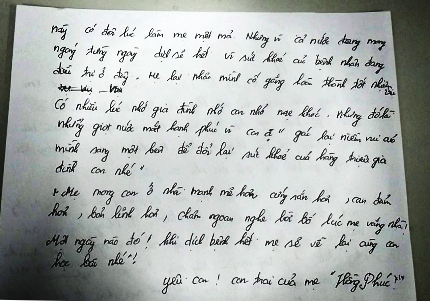 này có đôi lúc làm mẹ mệt mỏi. Nhưng vì cả nước đang mong
ngóng từng ngày dịch sẽ hết vì sức khoẻ của bệnh nhân đang
điều trị ở đây. Mẹ lại nhắc mình cố gắng hoàn thành tốt nhiệm vụ
Có nhiều lúc nhớ gia đình nhớ con nhớ mẹ khóc. Nhưng đó là
những giọt nước mắt hạnh phúc vì con ơi "gác lại niềm vui của
mình sang một bên để đổi lại sức khoẻ của hàng triệu gia
đình con nhé"
+ Mẹ mong con ở nhà mạnh mẽ hơn, cứng rắn hơn, can đảm
hơn, bản lĩnh hơn, chăm ngoan nghe lời bố lúc mẹ vắng nhà!
Một ngày nào đó! khi dịch bệnh hết mẹ sẽ về lại cùng con
học bài nhé"!
yêu con! con trai của mẹ "Hồng Phúc"